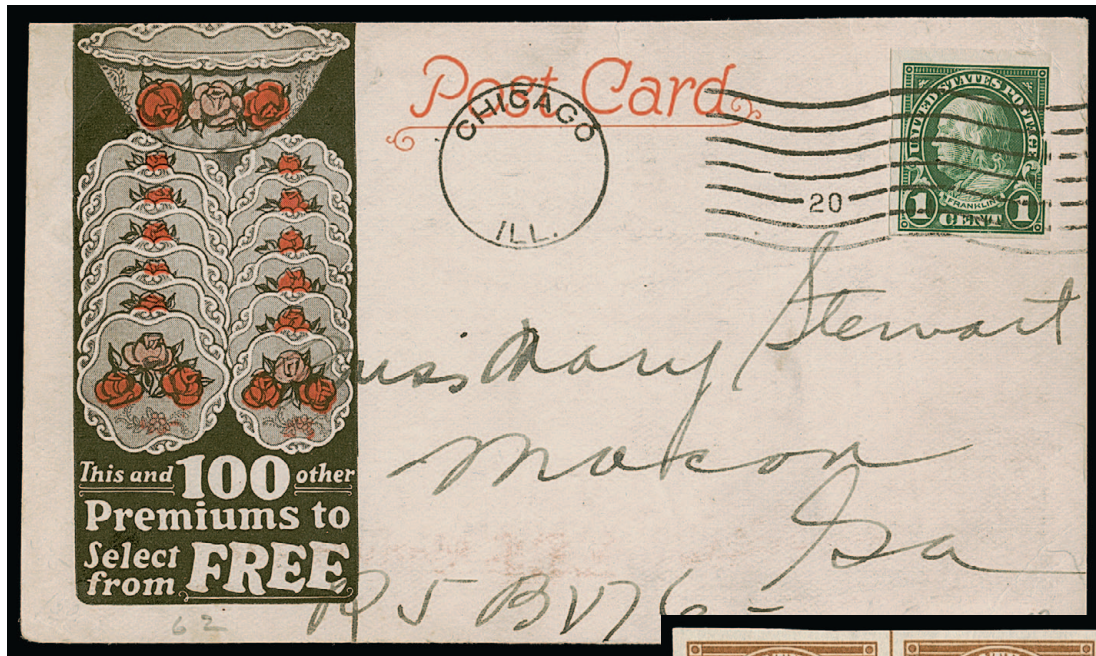 Post Card
CHICAGO
ILL.
20
UNITED STATES POSTAGE
FRANKLIN
1 CENT 1
Miss Mary Stewart
Macon
Ga
This and 100 other
Premiums to
Select
from FREE
62